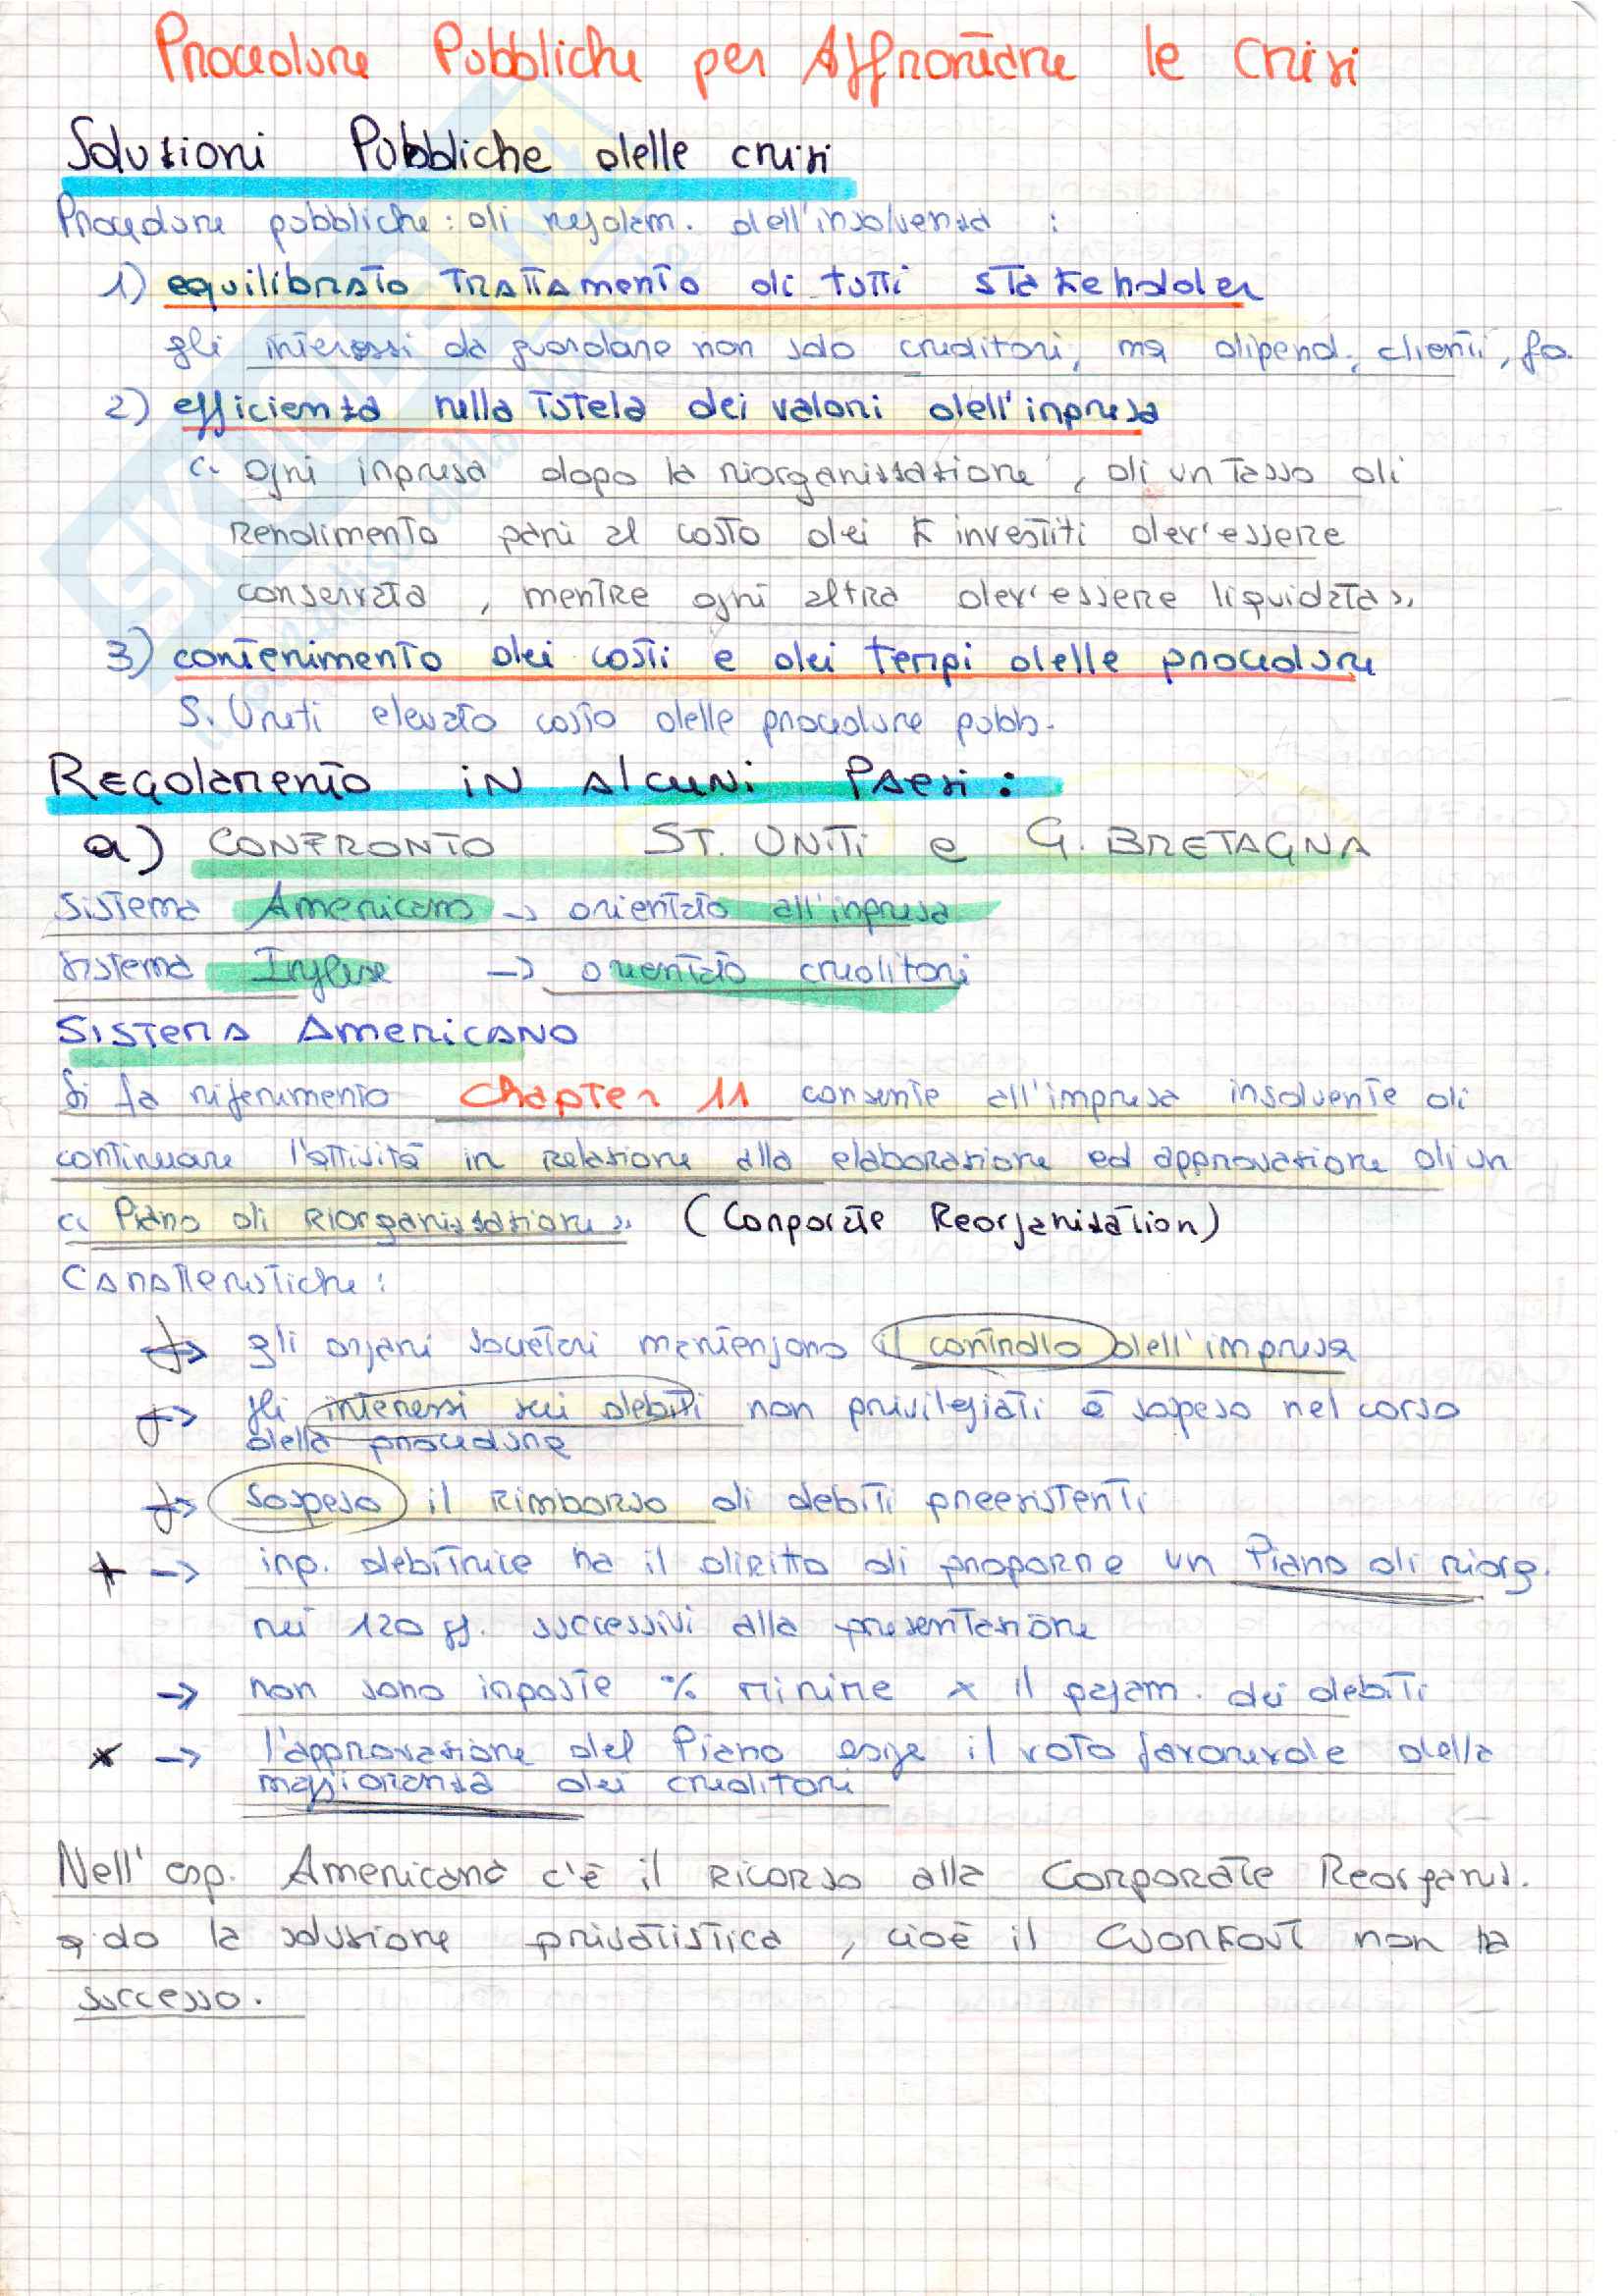 Procedure Pubbliche per Affrontare le Crisi
Soluzioni Pubbliche delle crisi
Procedure pubbliche: di regolam. dell'insolvenza :
1) equilibrato trattamento di tutti stakeholder
gli interessi da guardare non solo creditori, ma dipend., clienti, fo.
2) efficienza nella tutela dei valori dell'inpresa
" ogni inpresa dopo la riorganizzazione, di un tasso di
rendimento pari al costo dei K investiti dev'essere
conservata, mentre ogni altra dev'essere liquidata".
3) contenimento dei costi e dei tempi delle procedure
S. Uniti elevato costo delle procedure pubb.
Regolamento in alcuni Paesi:
a) CONFRONTO ST. UNITI e G. BRETAGNA
Sistema Americano → orientato all'inpresa
sistema Inglese → orientato creditori
Sistema Americano
Si fa riferimento Chapter 11 consente all'impresa insolvente di
continuare l'attività in relazione alla elaborazione ed approvazione di un
" Piano di Riorganizzazione" (Corporate Reorganisation)
Caratteristiche:
→ gli organi societari mantengono il controllo dell'impresa
→ gli interessi sui debiti non privilegiati è sospeso nel corso
della procedura
→ sospeso il rimborso di debiti preesistenti
* → inp. debitrice ha il diritto di proporre un Piano di riorg.
nei 120 gg. successivi alla presentazione
→ non sono inposte % minime x il pagam. dei debiti
* → l'approvazione del Piano esige il voto favorevole della
maggioranza dei creditori
Nell'esp. Americana c'è il ricorso alla Corporate Reorganis.
qdo la soluzione privatistica, cioè il Workout non ha
successo.